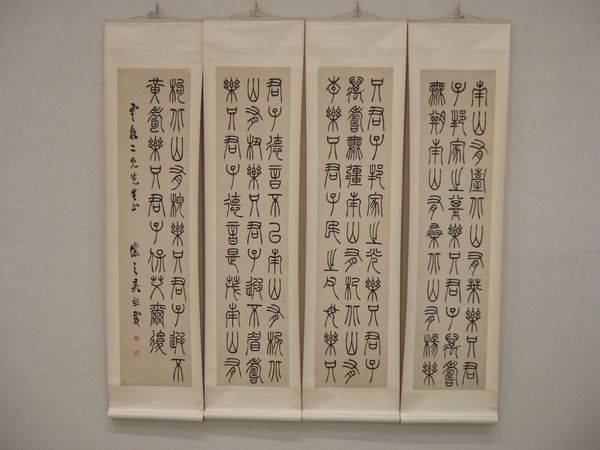 南山有臺北山有萊樂只君
子邦家之基樂只君子萬壽
無期南山有桑北山有楊樂
只君子邦家之光樂只君子
萬壽無疆南山有杞北山有
李樂只君子民之父母樂只
君子德音不已南山有栲北
山有杻樂只君子遐不眉壽
樂只君子德音是茂南山有
枸北山有楰樂只君子遐不
黃耇樂只君子保艾爾後
雲泉二兄先生正 讓之吳熙載